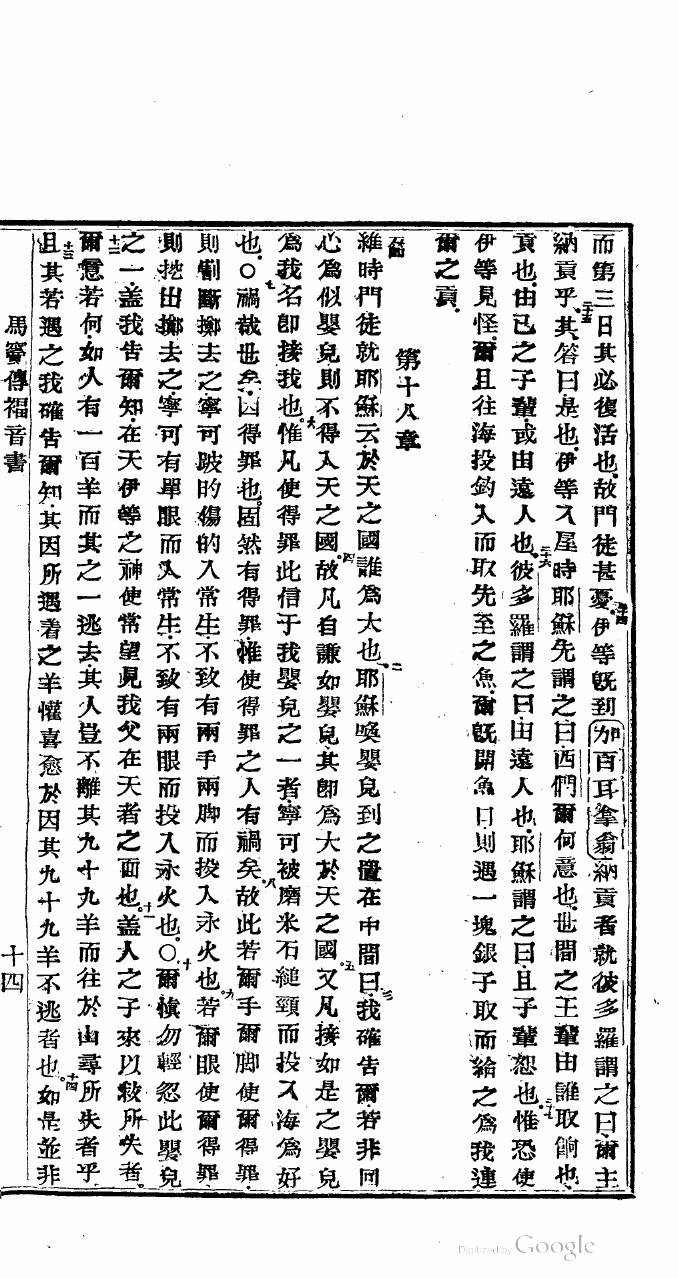 而第三日其必復活也。故門徒甚憂。二十四伊等旣到加百耳拿翁納貢者就彼多羅謂之曰爾主
納貢乎。二十五其答曰是也。伊等入屋時耶穌先謂之曰西們爾何意也。世間之王輩由誰取餉也。
貢也。由己之子輩或由遠人也。二十六彼多羅謂之曰由遠人也。耶穌謂之曰且子輩恕也。二十七惟恐使
伊等見怪。爾且往海投釣入而取先至之魚。爾旣開魚口則遇一塊銀子取而給之為我連
爾之貢。
第十八章
維時門徒就耶穌云於天之國誰為大也。二耶穌喚嬰兒到之置在中間曰。三我確告爾若非回
心為似嬰兒則不得入天之國。四故凡自謙如嬰兒其卽為大於天之國。五又凡接如是之嬰兒
為我名卽接我也。六惟凡使得罪此信于我嬰兒之一者寧可被磨米石縋頸而投入海為好
也。○七禍哉世矣。因得罪也。固然有得罪惟使得罪之人有禍矣。八故此若爾手爾脚使爾得罪
則割斷擲去之寧可跛的傷的入常生不致有兩手兩脚而投入永火也。九若爾眼使爾得罪
則挖出擲去之寧可有單眼而入常生不致有兩眼而投入永火也。○十爾慎勿輕忽此嬰兒
之一蓋我告爾知在天伊等之神使常望見我父在天者之面也。十一蓋人之子來以救所失者。
十二爾意若何如人有一百羊而其之一逃去其人豈不離其九十九羊而往於山尋所失者乎
十三且其若遇之我確告爾知其因所遇着之羊懽喜愈於因其九十九羊不逃者也。十四如是並非
馬竇傳福音書
十四
Digitized by Google